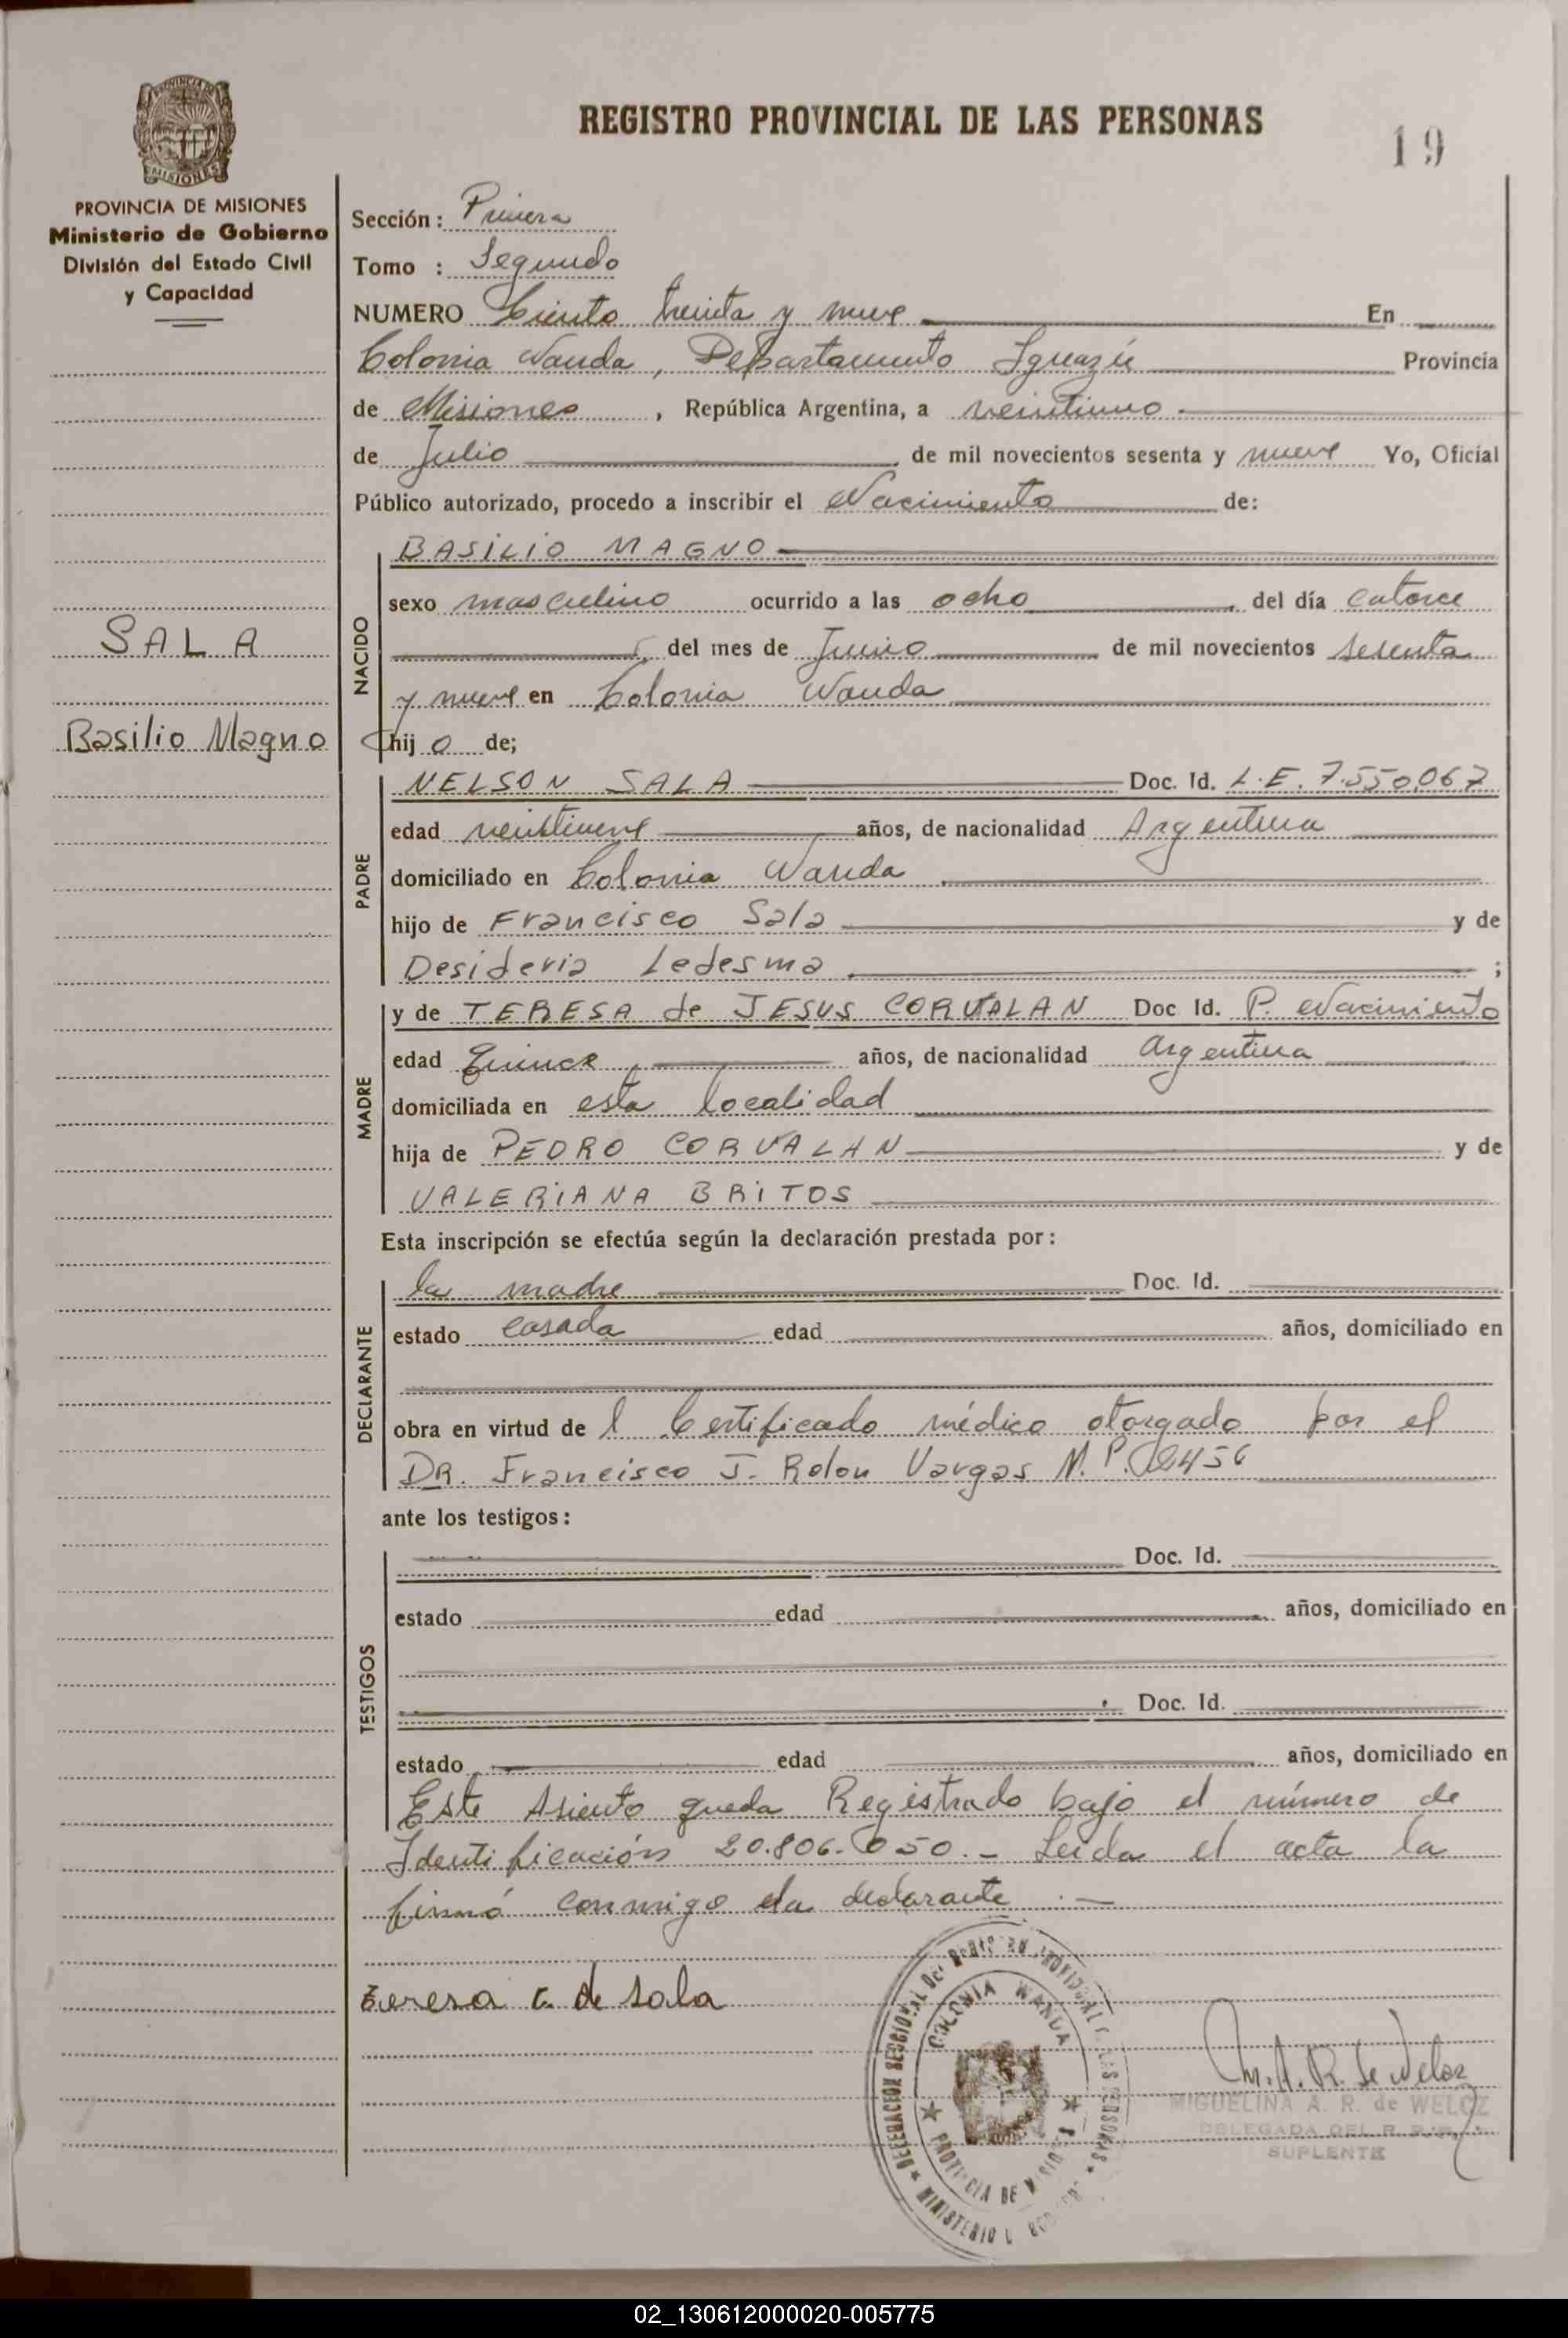 REGISTRO PROVINCIAL DE LAS PERSONAS
19
PROVINCIA DE MISIONES
PROVINCIA DE MISIONES
Ministerio de Gobierno
División del Estado Civil
y Capacidad
Sección: Primera
Tomo : Segundo
NUMERO Ciento treinta y nueve En
Colonia Wanda, Departamento Iguazú Provincia
de Misiones, República Argentina, a veintiuno
de Julio de mil novecientos sesenta y nueve Yo, Oficial
Público autorizado, procedo a inscribir el Nacimiento de:
NACIDO
BASILIO MAGNO
sexo masculino ocurrido a las ocho del día catorce
del mes de Junio de mil novecientos sesenta
y nueve en Colonia Wanda
hij o de;
SALA
Basilio Magno
PADRE
NELSON SALA Doc. Id. L.E. 7.550.067
edad veintinueve años, de nacionalidad Argentina
domiciliado en Colonia Wanda
hijo de Francisco Sala y de
Desideria Ledesma ;
MADRE
y de TERESA de JESUS CORVALAN Doc Id. P. Nacimiento
edad Quince años, de nacionalidad Argentina
domiciliada en esta localidad
hija de PEDRO CORVALAN y de
VALERIANA BRITOS
Esta inscripción se efectúa según la declaración prestada por:
DECLARANTE
la madre Doc. Id.
estado casada edad años, domiciliado en
obra en virtud de l Certificado médico otorgado por el
DR. Francisco J. Rolon Vargas M.P. 2456
ante los testigos:
TESTIGOS
Doc. Id.
estado edad años, domiciliado en
Doc. Id.
estado edad años, domiciliado en
Este Asiento queda Registrado bajo el número de
Identificación 20.806.050.- Leida el acta la
firmó conmigo la declarante .-
Teresa C. de Sala
DELEGACION SECCIONAL DEL REGISTRO PROVINCIAL DE LAS PERSONAS
COLONIA WANDA
PROVINCIA DE MISIONES
MINISTERIO DE GOBIERNO
M.A.R. de Weloz
MIGUELINA A. R. de WELOZ
DELEGADA DEL R. P. P.
SUPLENTE
02_130612000020-005775